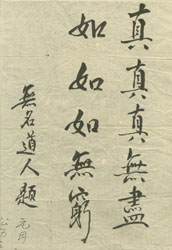 真真真無盡
如如如無窮
無名道人題
元月